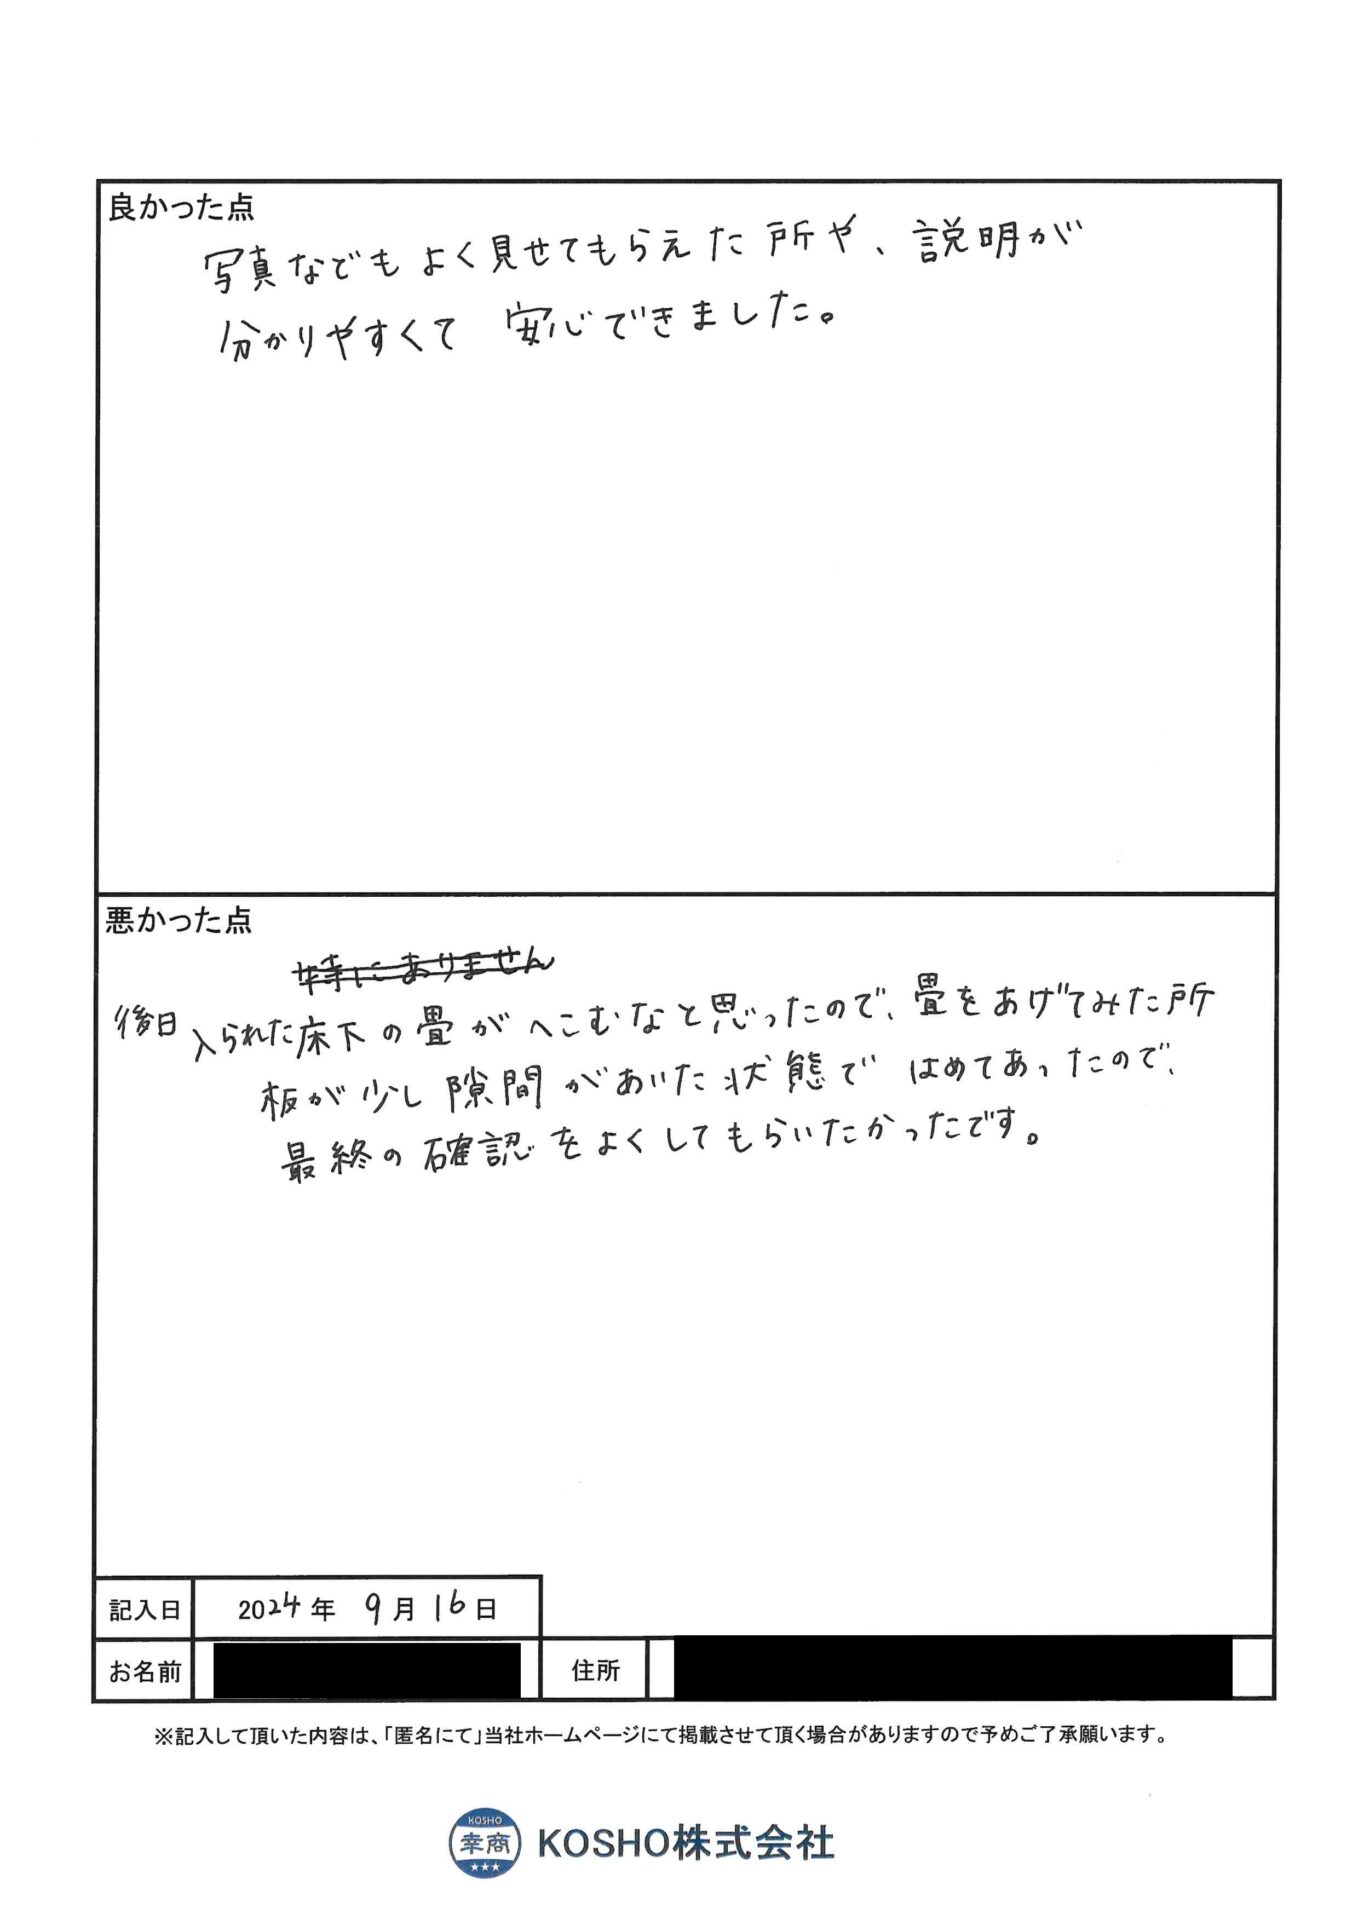 良かった点
写真などもよく見せてもらえた所や、説明が
分かりやすくて 安心できました。
悪かった点
特にありません
後日 入られた床下の畳がへこむなと思ったので、畳をあげてみた所
板が少し隙間があいた状態で はめてあったので、
最終の確認をよくしてもらいたかったです。
記入日 2024年 9月16日
お名前 住所
※記入して頂いた内容は、「匿名にて」当社ホームページにて掲載させて頂く場合がありますので予めご了承願います。
KOSHO
幸商
KOSHO株式会社